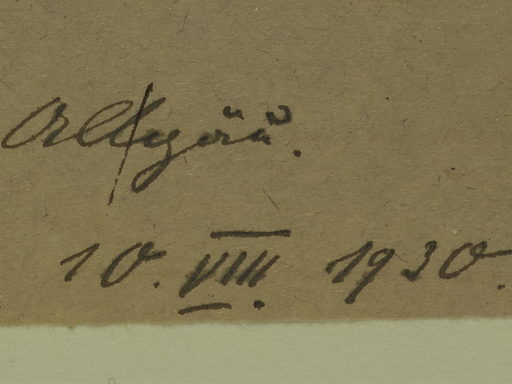 Allgäu.
10. VIII. 1930.